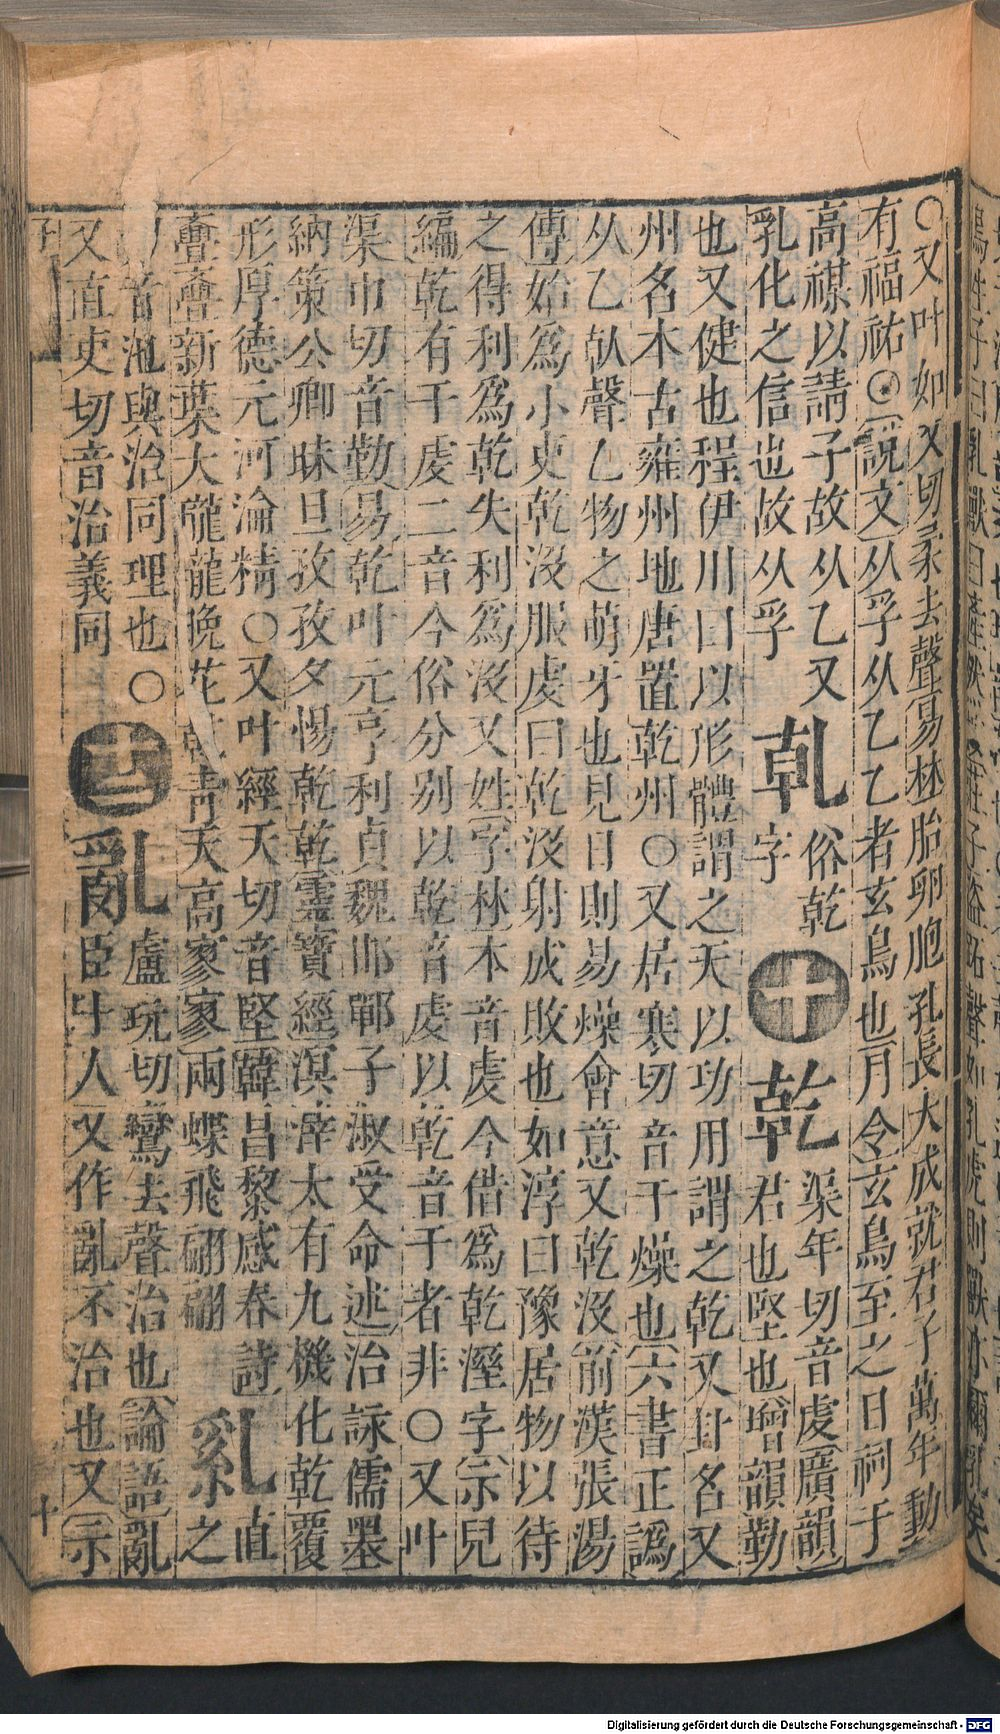 ○又叶如又切柔去聲易林胎卵胞孔長大成就君子萬年動
有福祐○說文从孚从乙乙者玄鳥也月令玄鳥至之日祠于
高禖以請子故从乙又
乳化之信也故从孚
乹
俗乾
字
十
乾
渠年切音虔廣韻
君也堅也增韻勤
也又健也程伊川曰以形體謂之天以功用謂之乾又卦名又
州名本古雍州地唐置乾州○又居寒切音干燥也六書正譌
从乙倝聲乙物之萌牙也見日則易燥會意又乾沒前漢張湯
傳始爲小吏乾沒服虔曰乾沒射成敗也如淳曰豫居物以待
之得利爲乾失利爲沒又姓字林本音虔今借爲乾溼字示兒
編乾有干虔二音今俗分别以乾音虔以乹音干者非○又叶
渠巾切音勤易乾叶元亨利貞魏邯鄲子淑受命述治詠儒墨
納策公卿昧旦孜孜夕惕乾乾靈寶經溟涬太有九機化乾覆
形厚德元河淪精○又叶經天切音堅韓昌黎感春詩
亹亹新葉大瓏瓏晚花乾靑天高寥寥兩蝶飛翩翩
乿
直
之
切音池與治同理也○
又直吏切音治義同
十二
𤔔
盧玩切鸞去聲治也論語亂
臣十人又作亂不治也又示
子
十
Digitalisierung gefördert durch die Deutsche Forschungsgemeinschaft - DFG